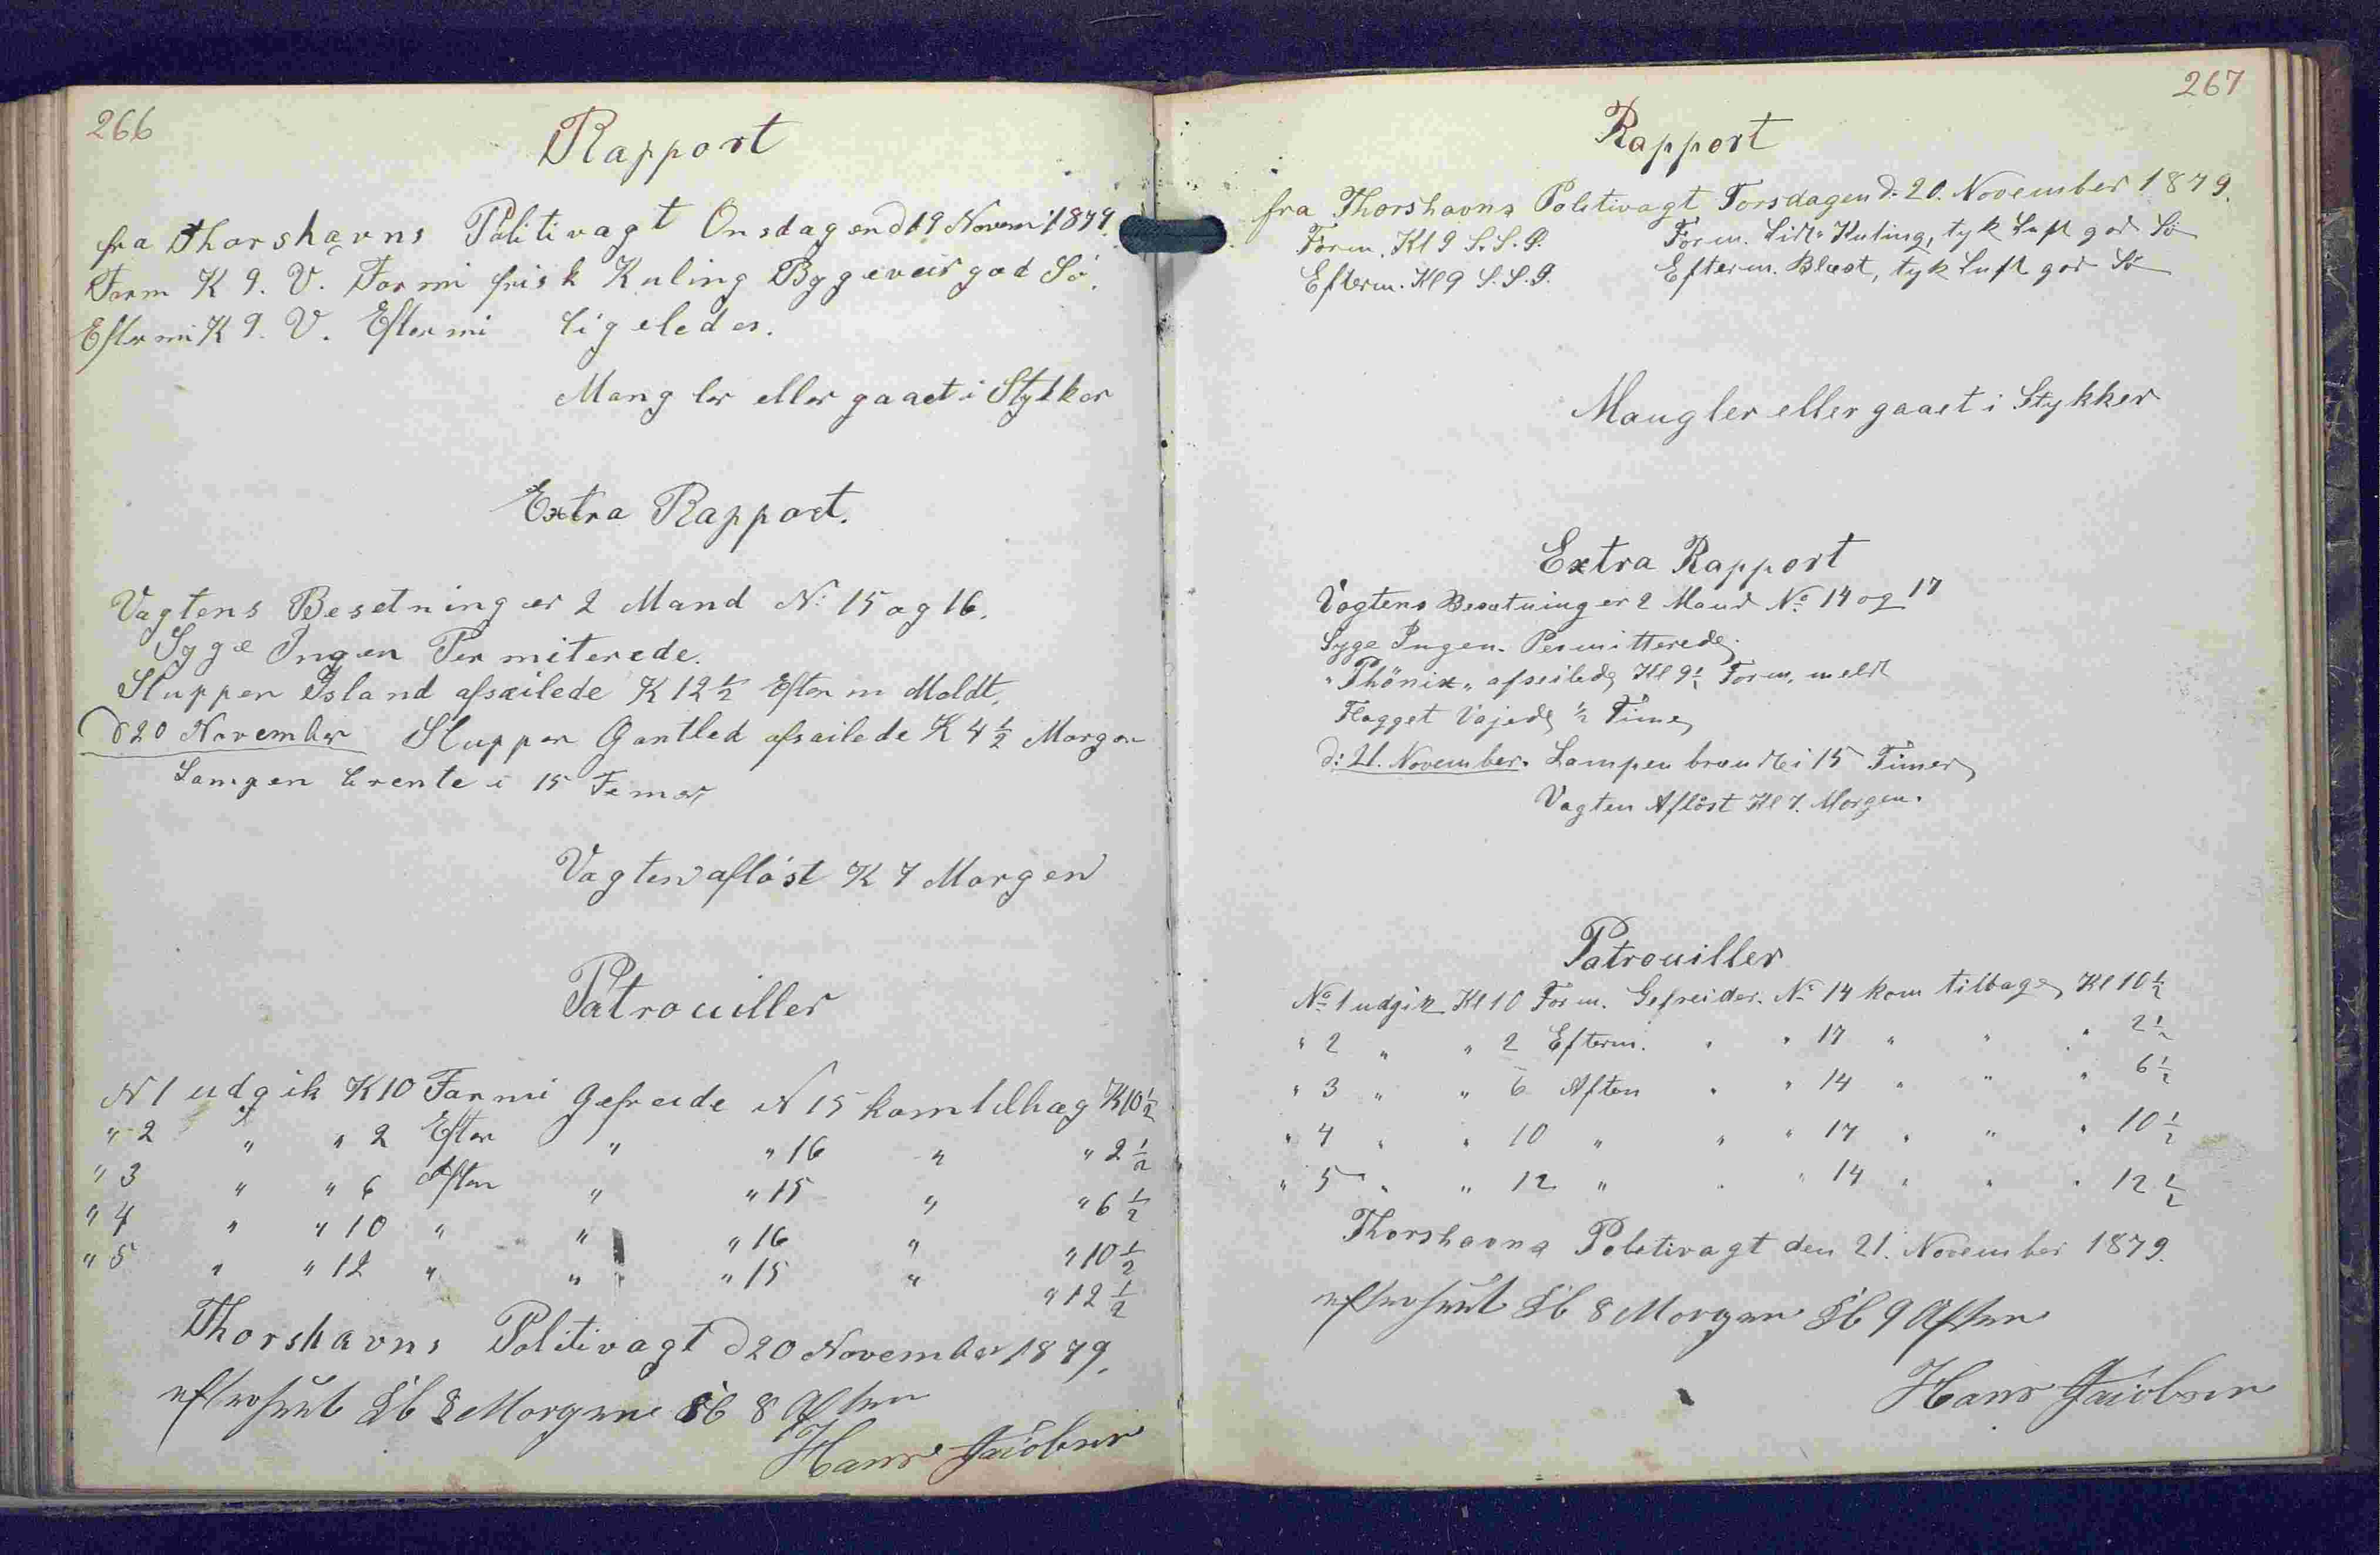 266
Rapport
fra Thorshavns Politivagt Onsdagen d 19 Novem 1879.
Form K 9. V. Formi frisk Kuling Bygeveir god Sö.
Eftermi K 9. V. Eftermi ligeledes.
Mangler eller gaaet i Stykker
Extra Rapport.
Vagtens Besetning er 2 Mand N: 15 og 16.
Syge Ingen Permiterede.
Sluppen Island afseilede K 12½ Efterm Meldt.
d 20 November Sluppen Gantled afseilede K 4½ Morgen
Lampen brente i 15 Temer
Vagten aflöst K 7 Morgen
Patrouiller
N 1 udgik K 10 Formi Gefreide N 15 kom tilbag K 10½
" 2 " " 2 Efter " " 16 " " 2½
" 3 " " 6 Aften " " 15 " " 6½
" 4 " " 10 " " " 16 " " 10½
" 5 " " 12 " " " 15 " " 12½
Thorshavns Politivagt d 20 November 1879.
efterseet Kl 8 Morgen Kl 8 Aften
Hans Jacobsen
267
Rapport
fra Thorshavns Politivagt Torsdagen d. 20. November 1879.
Form. Kl 9 S.S.O. Form. Lidt Kuling, tyk Luft god Sö
Efterm. Kl 9 S.S.O. Efterm. Blæst, tyk Luft god Sö
Mangler eller gaaet i Stykker
Extra Rapport
Vagtens Besætning er 2 Mand No 14 og 17
Syge Ingen. Permitterede.
"Phönix" afseilede Kl 9½ Form. meldt
Flagget Vajede ½ Time
d: 21. November. Lampen brændte i 15 Timer
Vagten Aflöst Kl 7. Morgen.
Patrouiller
No 1 udgik Kl 10 Form. Gefreider. No 14 kom tilbage Kl 10½
" 2 " " 2 Efterm. " " 17 " " " 2½
" 3 " " 6 Aften " " 14 " " " 6½
" 4 " " 10 " " " 17 " " " 10½
" 5 " " 12 " " " 14 " " " 12½
Thorshavns Politivagt den 21. November 1879.
efterseet Kl 8 Morgen Kl 9 Aften
Hans Jacobsen